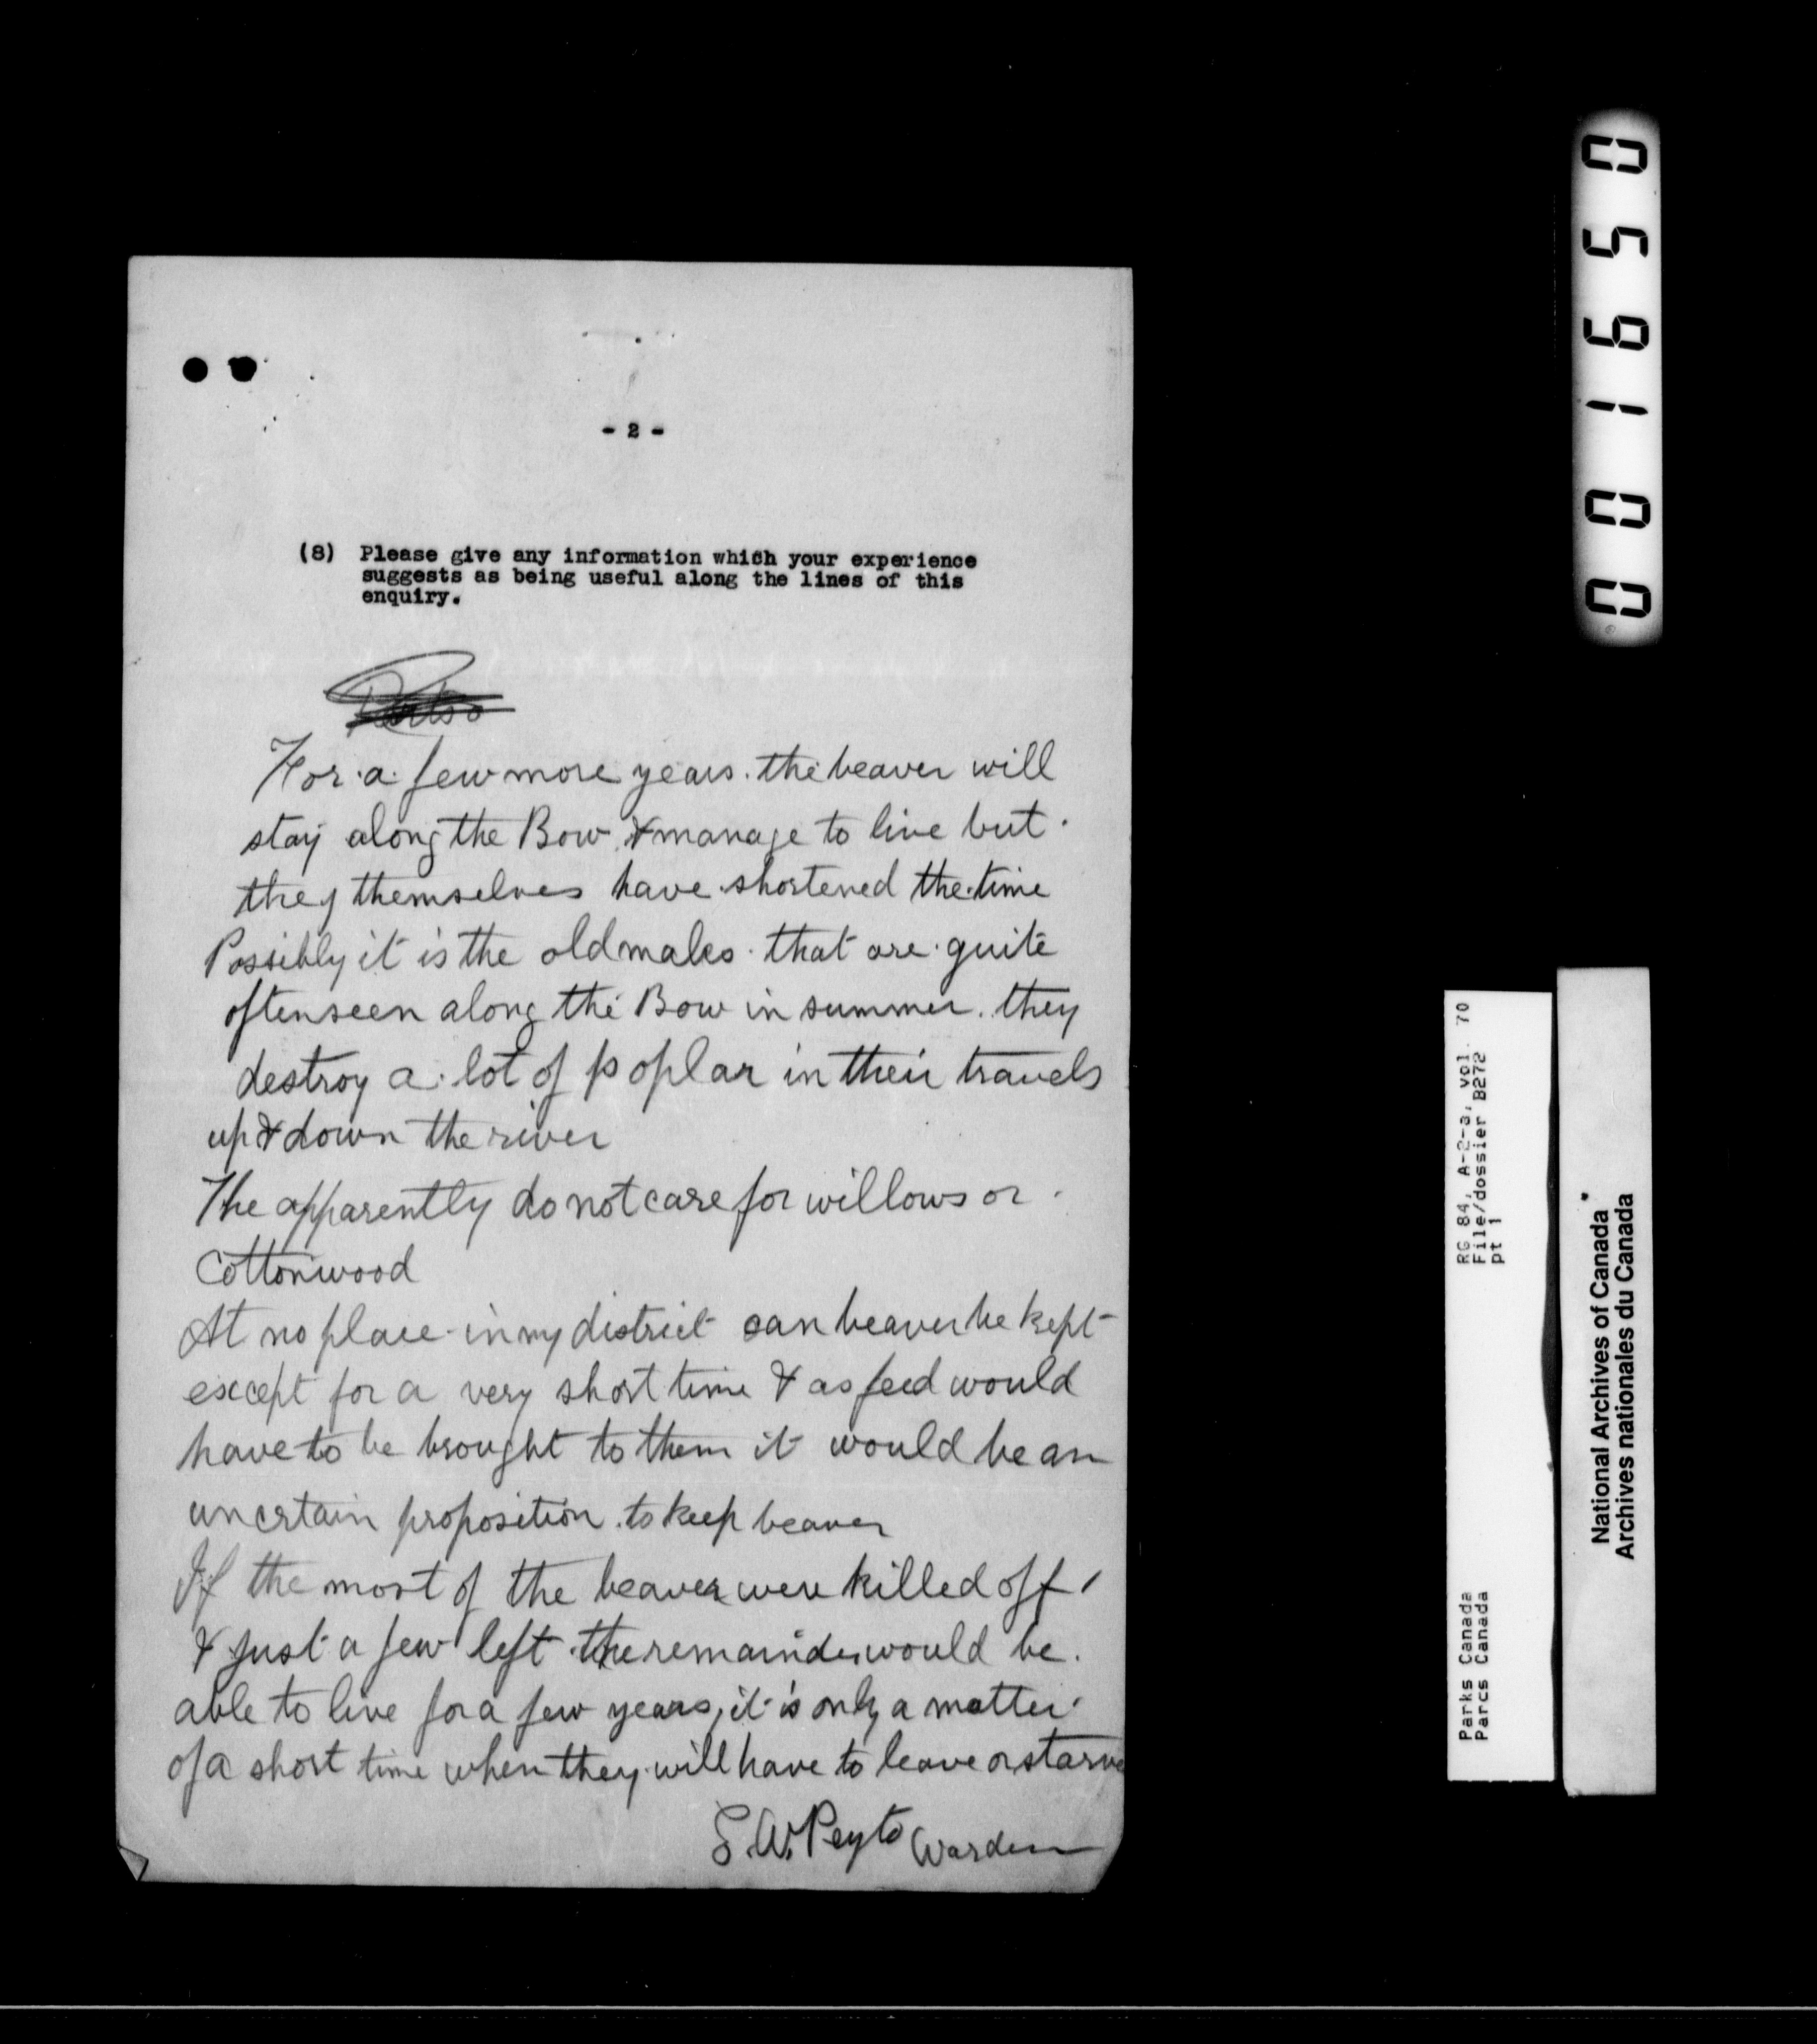 - 2 -
(8) Please give any information which your experience
suggests as being useful along the lines of this
enquiry.
For a few more years. the beaver will
stay along the Bow & manage to live but
they themselves have shortened the time
Possibly it is the old males that are quite
often seen along the Bow in summer. they
destroy a lot of poplar in their travels
up & down the river
The apparently do not care for willows or
Cottonwood
At no place in my district can beaver be kept
except for a very short time & as feed would
have to be brought to them it would be an
uncertain proposition to keep beaver
If the most of the beaver were killed off
& just a few left the remainder would be
able to live for a few years, it is only a matter
of a short time when they will have to leave or starve
S. W. Peyto Warden
001650
RG 84, A-2-a, vol. 70
File/dossier B272
pt 1
Parks Canada
Parcs Canada
National Archives of Canada
Archives nationales du Canada